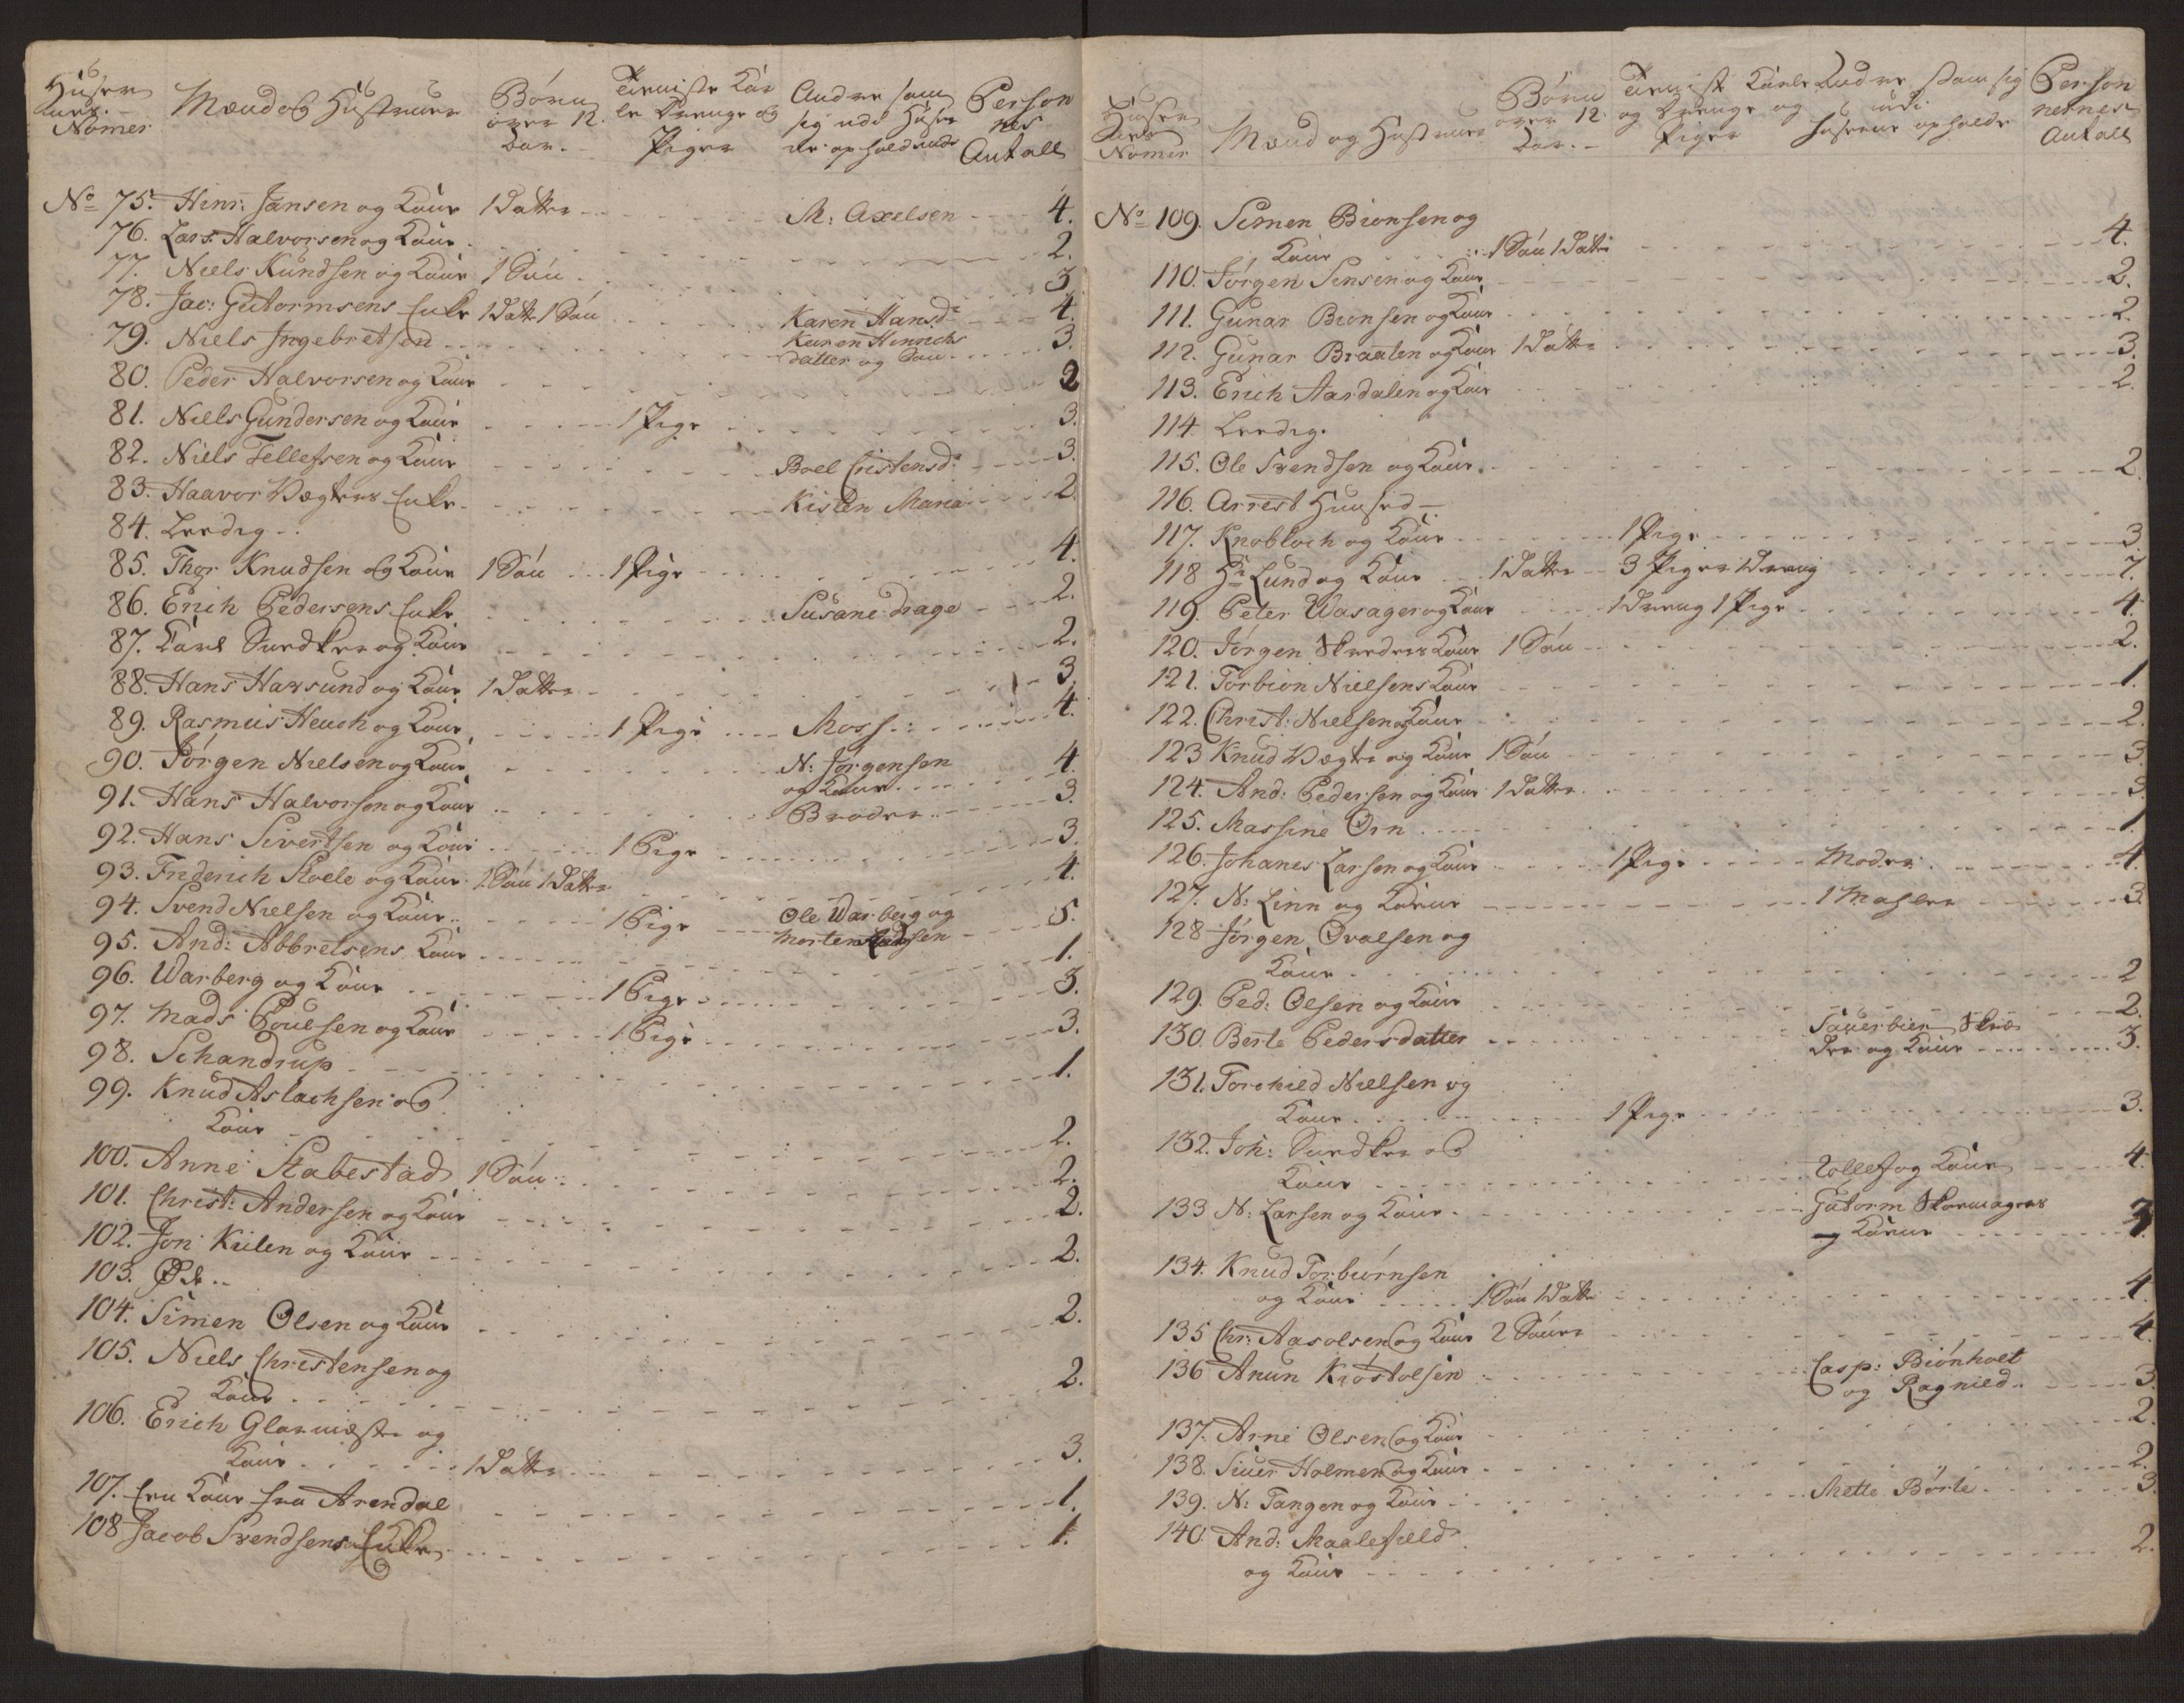 Huser
nes
Nomer
Mænd og Hustruer
Børn
over 12.
Aar.
Tieniste Kar
le Drenge og
Piger
Andre som
sig udi Huser
ne opholdende
Person
nes
Antall
No 75. Hinr: Jansen og Kone 1 Datter M: Axelsen 4.
76. Lars Halvorsen og Kone 2.
77. Niels Kundsen og Kone 1 Søn 3
78. Jac: Gutormsens Enke 1 Datt 1 Søn Karen Hansd: 4.
79. Niels Ingebretsen Karen Hinrichs 3.
datter og Søn
80. Peder Halvorsen og Kone 2
81. Niels Gundersen og Kone 1 Pige 3.
82. Niels Tellefsen og Kone Boel Cristensd: 3.
83. Haavor Vegters Enke Kisten Maria 2.
84. Leedig
85. Thor Knudsen og Kone 1 Søn 1 Pige 4.
86. Erich Pedersens Enke Susane drage 2.
87. Karl Snedker og Kone 2.
88. Hans Havsund og Kone 1 Datter 3.
89. Rasmus Heuch og Kone 1 Pige Moss: 4.
90. Jørgen Nielsen og Kone N: Jørgensen 4.
og Kone
91. Hans Halvorsen og Kone Broder 3.
92. Hans Sivertsen og Kone 1 Pige 3.
93. Friderich Stoele og Kone 1 Søn 1 Datter 4.
94. Svend Nielsen og Kone 1 Pige Ole Warberg og 5.
Morten Madsen
95. And: Abbretsens Kone 1.
96. Warberg og Kone 1 Pige 3.
97. Mads Poulsen og Kone 1 Pige 3.
98. Schandrup 1.
99. Knud Aslachsen og
Kone 2.
100. Anne Stabestad 1 Søn 2.
101. Christ: Andersen og Kone 2.
102. Jon Kiilen og Kone 2.
103. Øde
104. Simen Olsen og Kone 2.
105. Niels Christensen og
Kone 2.
106. Erich Glarmester og
Kone 1 Datter 3.
107. Een Kone fra Arendal 1.
108 Jacob Svendsens Enke 1.
Huser
nes
Nomer
Mænd og Hustruer
Børn
over 12
Aar.
Tienist Karle
og Drenge og
Piger
Andre som sig
udi
Huserne opholde
Person
nernes
Antall
No 109. Simen Bionsen og
Kone 1 Søn 1 Datt 4.
110. Jørgen Jensen og Kone 2.
111. Gunar Bionsen og Kone 2.
112. Gunar Braalen og Kone 1 Datter 3.
113. Erich Aardalen og Kone 2.
114. Leedig.
115. Ole Svendsen og Kone 2.
116. Arrest Huused
117. Knobloch og Kone 1 Pige 3
118 Hr Lund og Kone 1 Datter 3 Piger 1 Dreng 7.
119. Peter Wasager og Kone 1 Dreng 1 Pige 4.
120. Jørgen Skreders Kone 1 Søn 2.
121. Torbion Nielsens Kone 1.
122. Christ: Nielsen og Kone 2.
123 Knud Vegter og Kone 1 Søn 3.
124. And: Pedersen og Kone 1 Datter 3.
125. Massine Orn 1.
126. Johanes Larsen og Kone 1 Pige Moder 4.
127. N: Linn og Kone 1 Mahler 3.
128 Jørgen Ovalsen og
Kone 2
129. Ped: Olsen og Kone 2.
130. Berte Pedersdatter Sauerbier Skre 3.
der og Kone
131. Torchild Nielsen og
Kone 1 Pige 3.
132. Joh: Snedker og
Kone Tollef og Kone 4.
133 N: Larsen og Kone Gutorm Skomagers
og Kone
134. Knud Torbiørnsen
og Kone 1 Søn 1 Datt 4.
135 Chr: Aasolsen og Kone 2 Sønner 4.
136 Anun Kiøstolsen Casp: Biønholt
og Ragnild 3.
137. Arne Olsen og Kone 2.
138. Siuer Holmen og Kone 2.
139. N: Tangen og Kone Mette Børte 3.
140. And: Maalefield
og Kone 2.